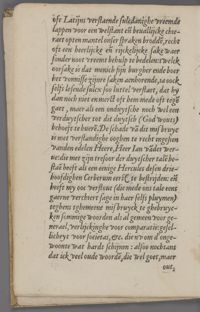 oft Latijns verstaende sulcdanighe vriemde
lappen voor een welstant eñ bevallijcke cheraet
open mantel onser spraken broddẽ, recht
oft een heerlijcke eñ rijckelijcke sake waer
sonder noot vreemt behulp te
oorsake is dat menich fijn borgher ende boer
het vonnisse sijnre saken aenhoorende, ja oock
selfs lesende sulcx soo luttel verstaet, dat hy
dan noch niet en merct oft hem mede oft teghẽ
gaet, maer als een onduytsche noch wel een
verduytscher tot dit duytsch (God wouts)
behoeft te huerẽ. De schade vã dit misbruyc
is met verstandighe ooghen te recht ingesien
vanden edelen Heere, Heer Ian vãder werve:
die met zijn tresoor der duytscher tale bestaẽ
heeft als een eenige Hercules desen driehoofdighen
Cerberum eerst te bestrijden: eñ
heeft my ooc verstout (die mede ons tale eens
gaerne verchiert sage in haer selfs pluymen)
teghens tghemeene misbruyck te ghebruycken
sommige woorden als al ghemeen voor generael,
verlijckinghe voor comparatie: gesellicheyt
voor societas, etc. die nv om d'ongewoonte
wat hardt schijnen: alsoo nochtans
dat ick veel oude woordẽ, die wel goet, maer
out,